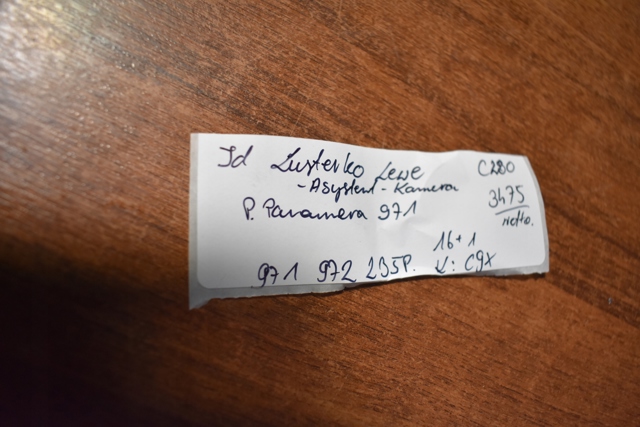 Jd Lusterko Lewe C280
- Asystent - Kamera 3475
P. Panamera 971 netto.
16+1
971 972 235P. K: C9X